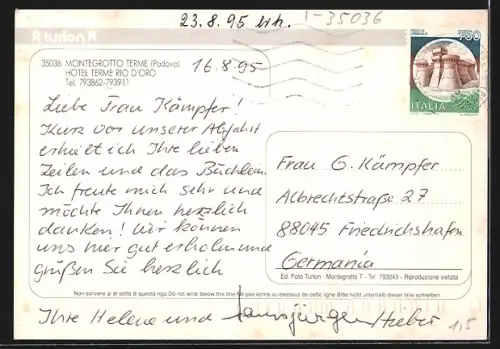 23.8.95 erh.
I-35036
turlon
750
ITALIA
35036 MONTEGROTTO TERME (Padova)
HOTEL TERME RIO D'ORO
Tel. 793862-793911
16.8.95
Liebe Frau Kämpfer!
Kurz vor unserer Abfahrt
erhielt ich Ihre lieben
Zeilen und das Büchlein.
Ich freute mich sehr und
möchte Ihnen herzlich
danken! Wir können
uns hier gut erholen und
grüßen Sie herzlich
Ihre Helene und Hansjürgen Huber
Frau G. Kämpfer
Albrechtstraße 27
88045 Friedrichshafen
Germania
Ed. Foto Turlon - Montegrotto T. - Tel. 793243 - Riproduzione vietata
Non scrivere al di sotto di questa riga Do not write below this line Ne pas écrire au dessous de cette ligne Bitte nicht unterhalb dieser linie schreiben
1,5